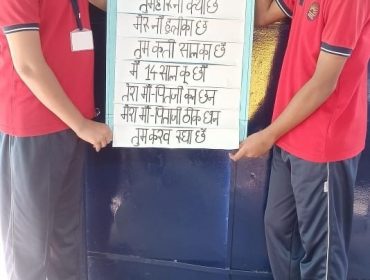 तुम्हार नौं क्या छ
मेरु नौं इलाका छ
तुम कती सालका छै
मैं 14 साल कु छौं
तेरा माँ-पिताजी कन छन
मेरा माँ-पिताजी ठीक छन
तुम करव रया छै